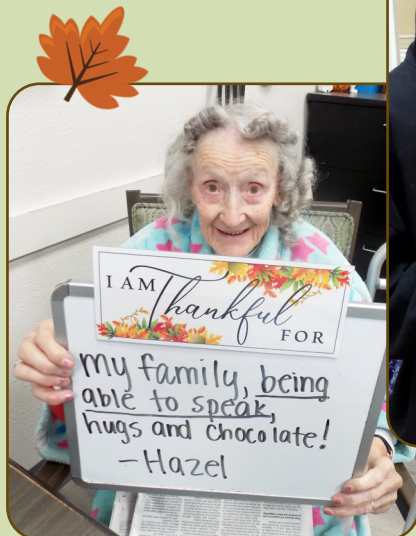 I AM Thankful FOR
My family, being
able to speak,
hugs and chocolate!
-Hazel